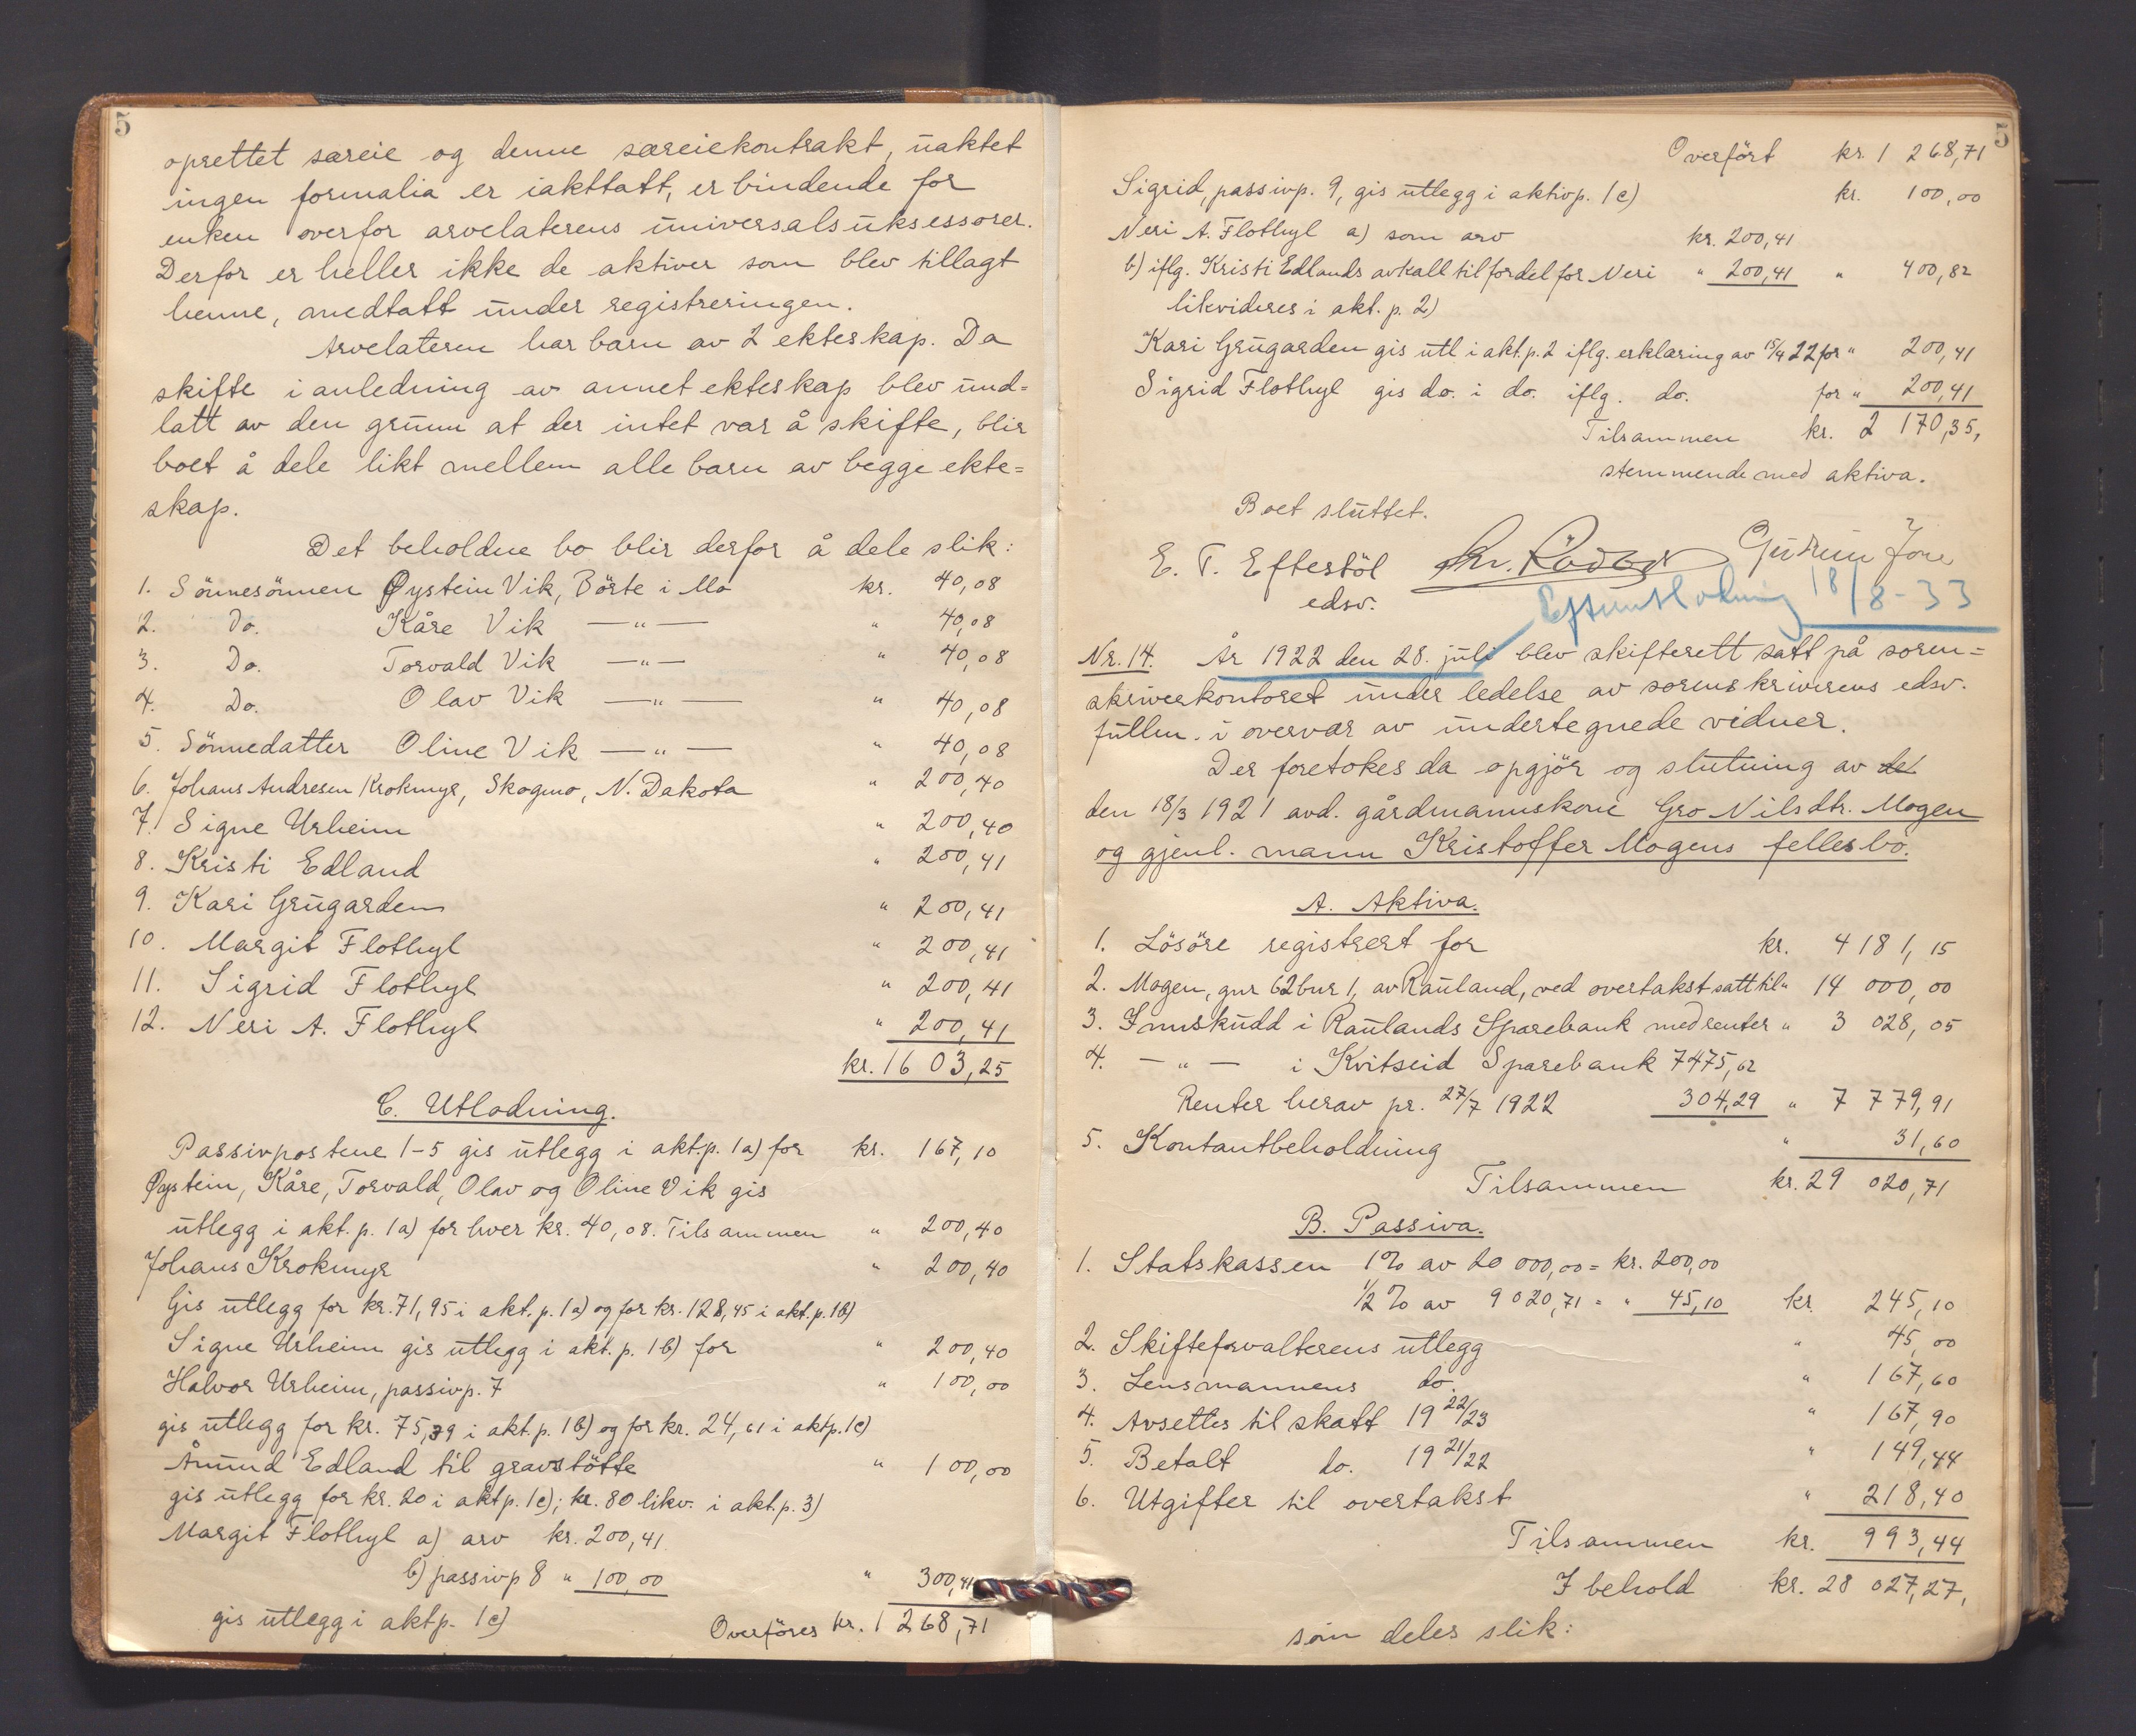 5
oprettet særeie og denne særeiekontrakt, uaktet
ingen formalia er iakttatt, er bindende for
enken overfor arvelaterens universalsuksessorer.
Derfor er heller ikke de aktiver som blev tillagt
henne, medtatt under registreringen.
Arvelateren har barn av 2 ekteskap. Da
skifte i anledning av annet ekteskap blev und=
latt av den grunn at der intet var å skifte, blir
boet å dele likt mellem alle barn av begge ekte=
skap.
Det beholdne bo blir derfor å dele slik:
1. Sönnesönnen Øystein Vik, Börte i Mo kr. 40,08
2. Do. Kåre Vik —"— " 40,08
3. Do. Torvald Vik —"— " 40,08
4. Do. Olav Vik —"— " 40,08
5. Sönnedatter Oline Vik —"— " 40,08
6. Johans Andresen Krokmyr, Skogmo, N. Dakota " 200,40
7. Signe Urheim " 200,40
8. Kristi Edland " 200,41
9. Kari Grugarden " 200,41
10. Margit Flothyl " 200,41
11. Sigrid Flothyl " 200,41
12. Neri A. Flothyl " 200,41
kr. 1603,25
C. Utlodning.
Passivpostene 1-5 gis utlegg i akt.p. 1a) for kr. 167,10
Øystein, Kåre, Torvald, Olav og Oline Vik gis
utlegg i akt. p. 1a) for hver kr. 40,08. Tilsammen " 200,40
Johans Krokmyr " 200,40
Gis utlegg for kr. 71,95 i akt. p. 1a) og for kr. 128,45 i akt. p. 1b)
Signe Urheim gis utlegg i akt. p. 1b) for " 200,40
Halvor Urheim, passivp. 7 " 100,00
gis utlegg for kr. 75,39 i akt. p. 1b) og for kr. 24,61 i aktp. 1c)
Åmund Edland til gravstötte " 100,00
gis utlegg for kr. 20 i aktp. 1c); kr. 80 likv. i akt. p. 3)
Margit Flothyl a) arv kr. 200,41
b) passivp 8 " 100,00 " 300,41
gis utlegg i aktp. 1c)
Overföres kr. 1 268,71
5
Overfört kr. 1 268,71
Sigrid, passivp. 9, gis utlegg i aktivp. 1c) kr. 100,00
Neri A. Flothyl a) som arv kr. 200,41
b) iflg. Kristi Edlands avkall til fordel for Neri " 200,41 " 400,82
likvideres i akt. p. 2)
Kari Grugarden gis utl i akt. p. 2 iflg. erklæring av 15/4 22 for " 200,41
Sigrid Flothyl gis do. i do. iflg. do. for " 200,41
Tilsammen kr. 2 170,35,
stemmende med aktiva.
Boet sluttet.
E. T. Eftestöl
edsv.
Gudrun Jore
18/8-33
Nr. 14. År 1922 den 28. juli blev skifterett satt på soren=
skriverkontoret under ledelse av sorenskriverens edsv.
fullm. i overvær av undertegnede vidner.
Der foretokes da opgjör og slutning av det
den 18/3 1921 avd. gårdmannskone Gro Nilsdtr. Mogen
og gjenl. mann Kristoffer Mogens fellesbo.
A. Aktiva.
1. Lösöre registrert for kr. 4181,15
2. Mogen, gnr 62 bnr 1, av Rauland, ved overtakst satt til " 14 000,00
3. Innskudd i Raulands Sparebank med renter " 3 028,05
4. —"— i Kvitseid Sparebank 7475,62
Renter herav pr. 27/7 1922 304,29 " 7 779,91
5. Kontantbeholdning " 31,60
Tilsammen kr. 29 020,71
B. Passiva.
1. Statskassen 1% av 20 000,00 = kr. 200,00
1/2 % av 9020,71 = " 45,10 kr. 245,10
2. Skifteforvalterens utlegg " 45,00
3. Lensmannens do. " 167,60
4. Avsettes til skatt 19 22/23 " 167,90
5. Betalt do. 19 21/22 " 149,44
6. Utgifter til overtakst " 218,40
Tilsammen kr. 993,44
I behold kr. 28 027,27,
som deles slik: